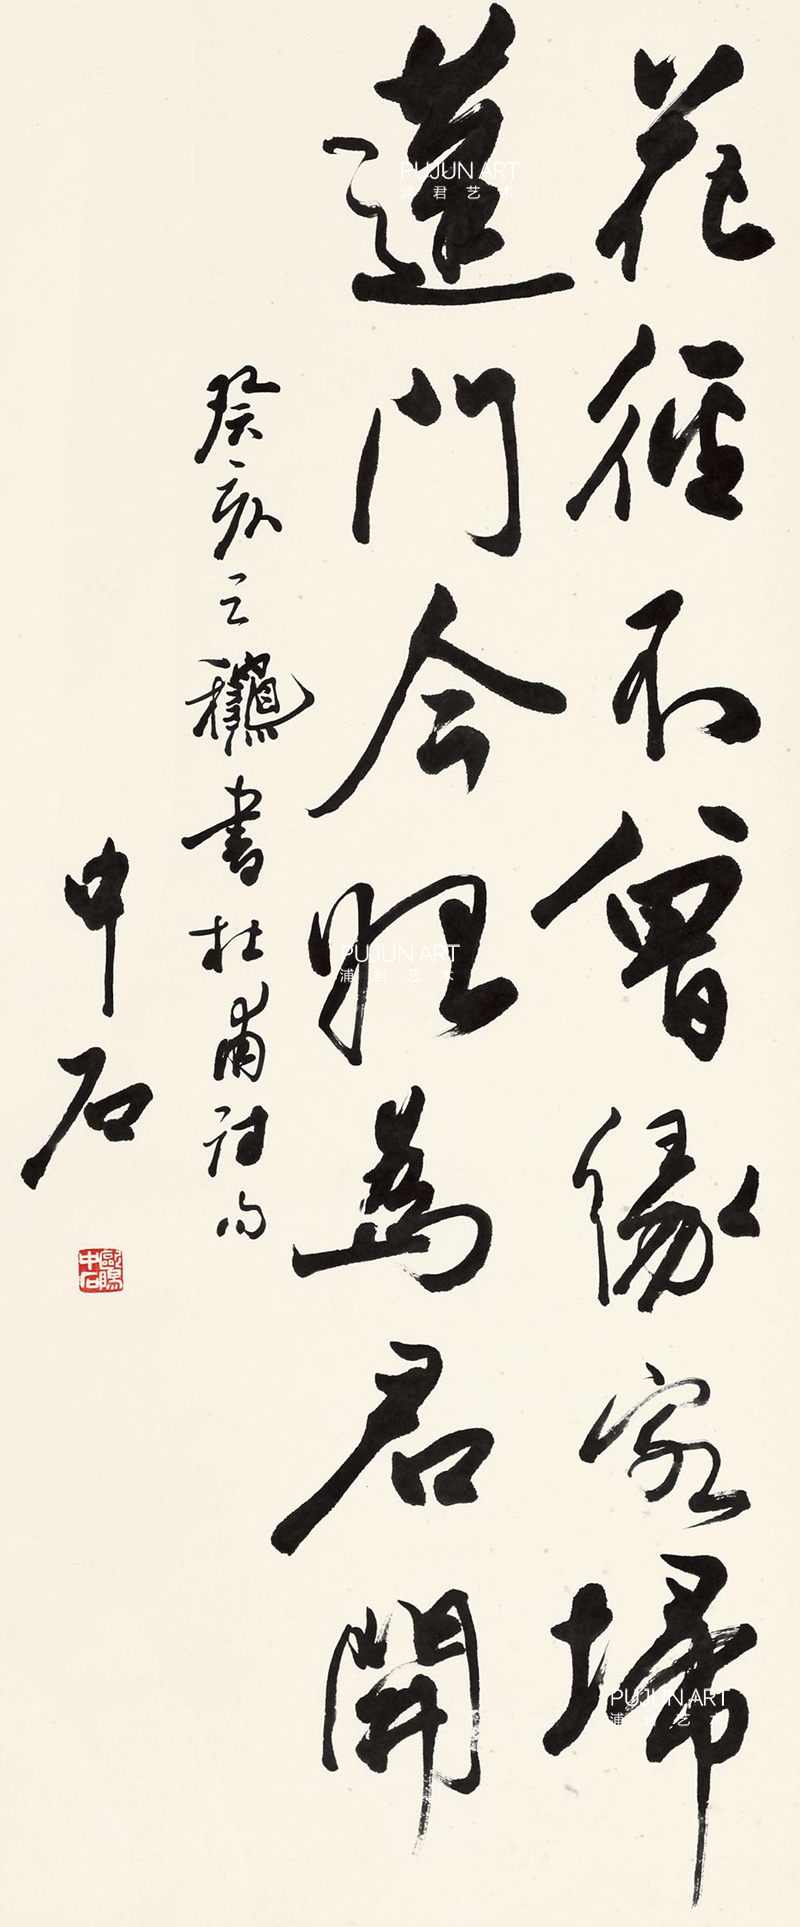 花徑不曾緣客掃
蓬門今始為君開
癸亥之龝書杜甫詩句
中石
歐陽中石
PUJUN ART
浦君艺术
PUJUN ART
浦君艺术
PUJUN ART
浦君艺术